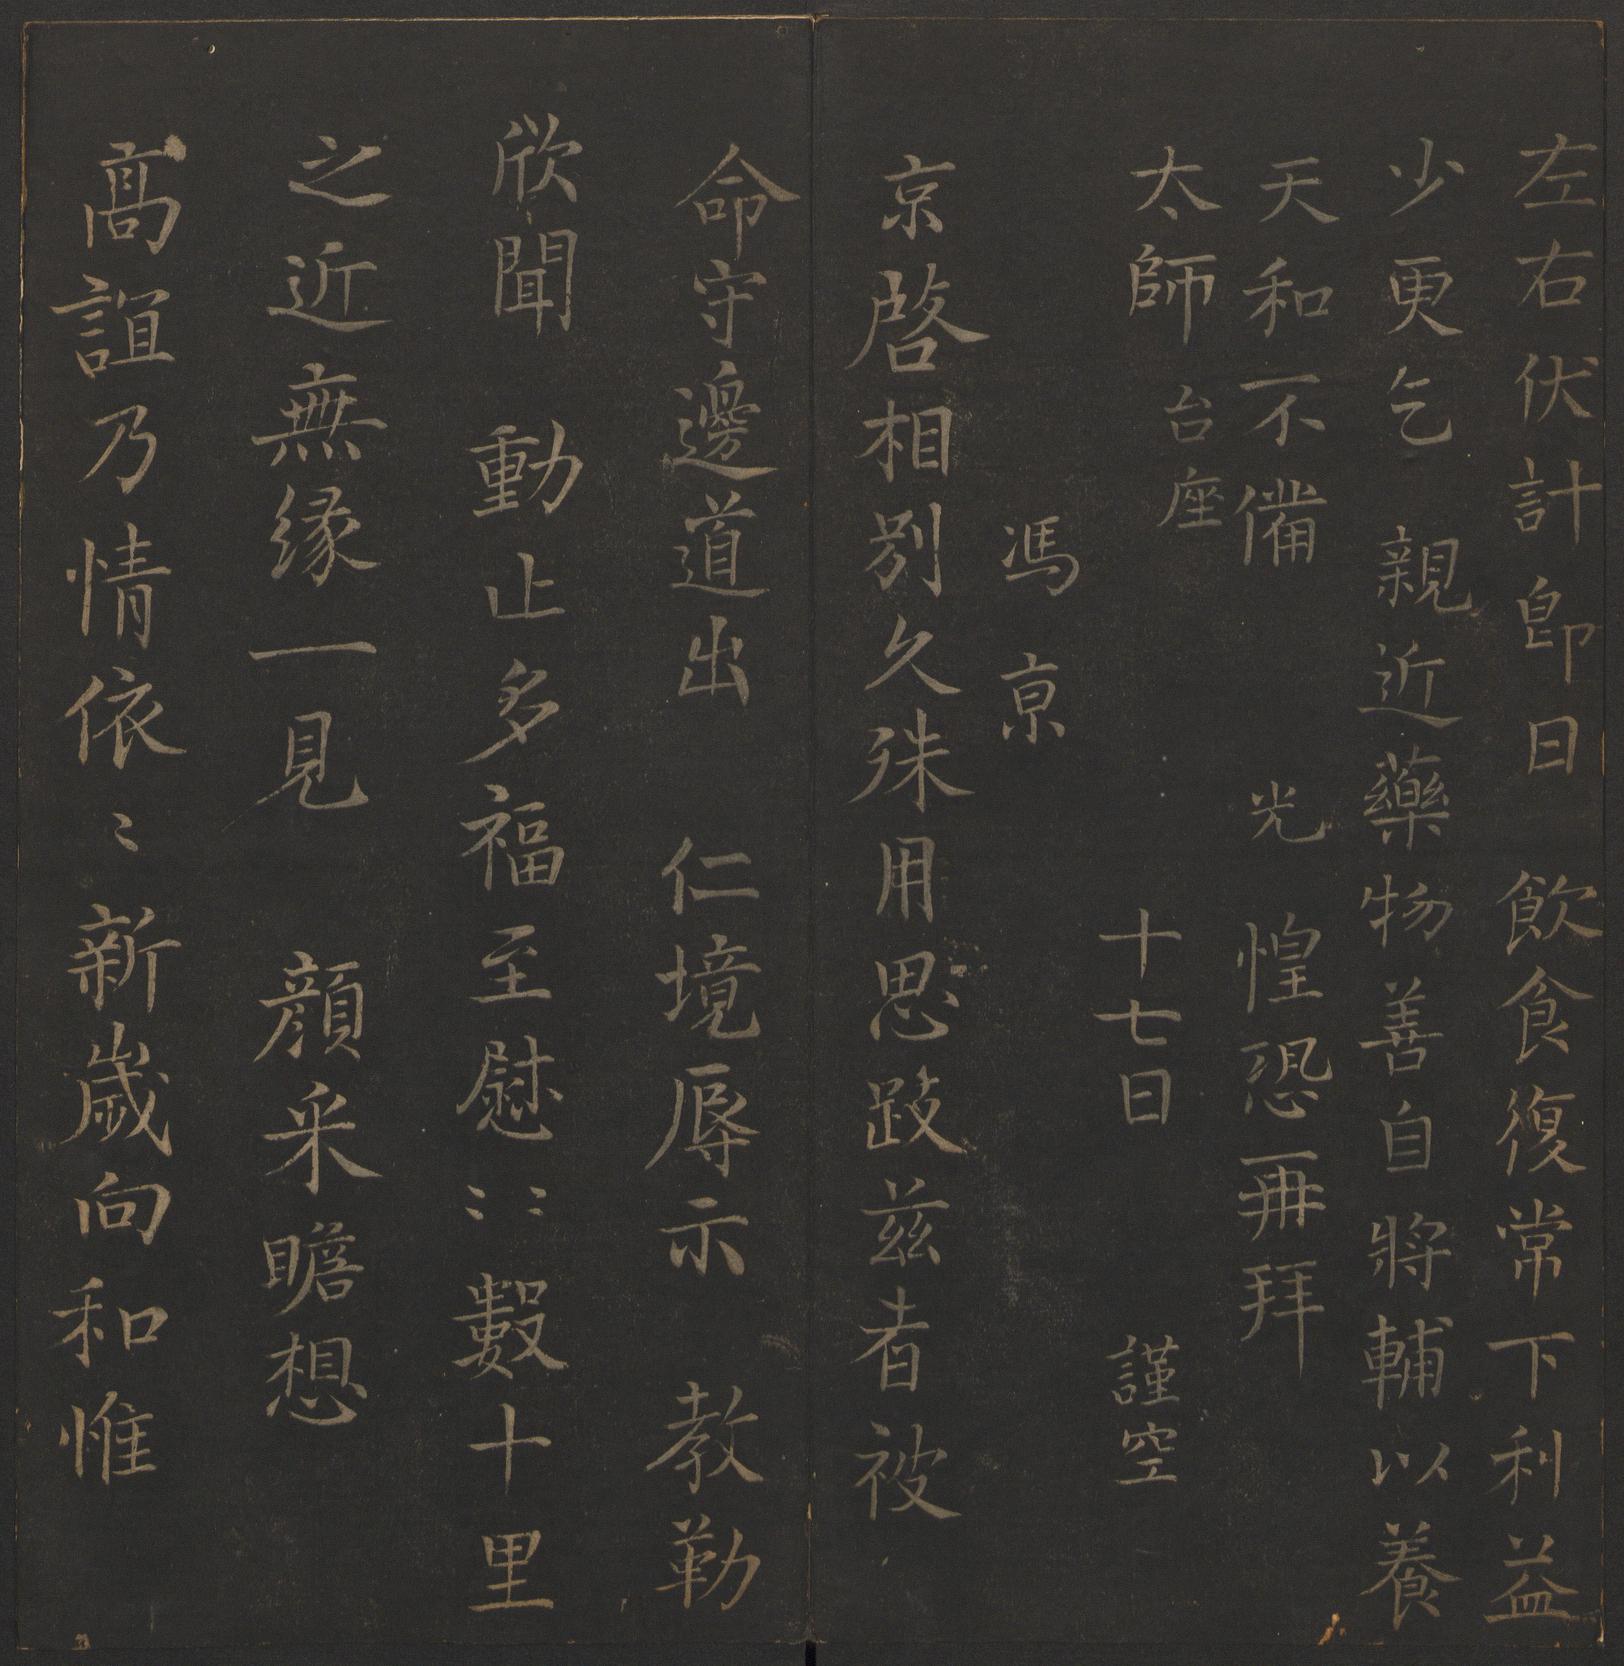 左右伏計即日 飲食復常下利益
少更乞 親近藥物善自將輔以養
天和不備 光 惶恐再拜
太師 台座 十七日 謹空
馮京
京啓相別久殊用思跂兹者被
命守邊道出 仁境辱示 教勒
欣聞 動止多福至慰〻〻數十里
之近無緣一見 顏采瞻想
高誼乃情依〻新歲向和惟